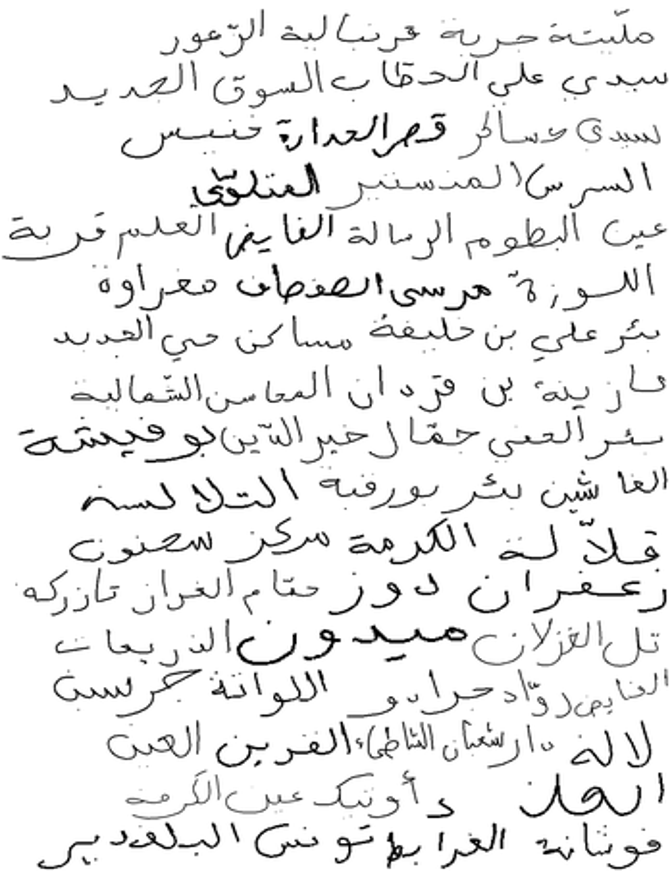 ملّيتة جربة قرنبالية الزّعور
سيدي علي الحطاب السوق الجديد
سيدي عساكر قصر العدارة خنيس
السرس المنستير المتلوّي
عين البطوم الرمالة الفايض العلم قربة
اللوزة مرسى الصفصاف مغراوة
بئر علي بن خليفة مساكن حي الجديد
بن قردان المحاسن الشّمالية
بئر الحفي حمّال خير الدّين بوفيشة
بئر بورقبة التلالسة
قلاّلة الكرمة مركز سحنون
زعفران دوز مقام الغراز تازركه
تل الغزلان ميدون الذريعات
الفايض روّاد اللواتة جرسين
لالة دار شعبان الشاطئ القرين العين
أوتيك عين الكرمة
فوشانة الغرابط تونس البلفدير